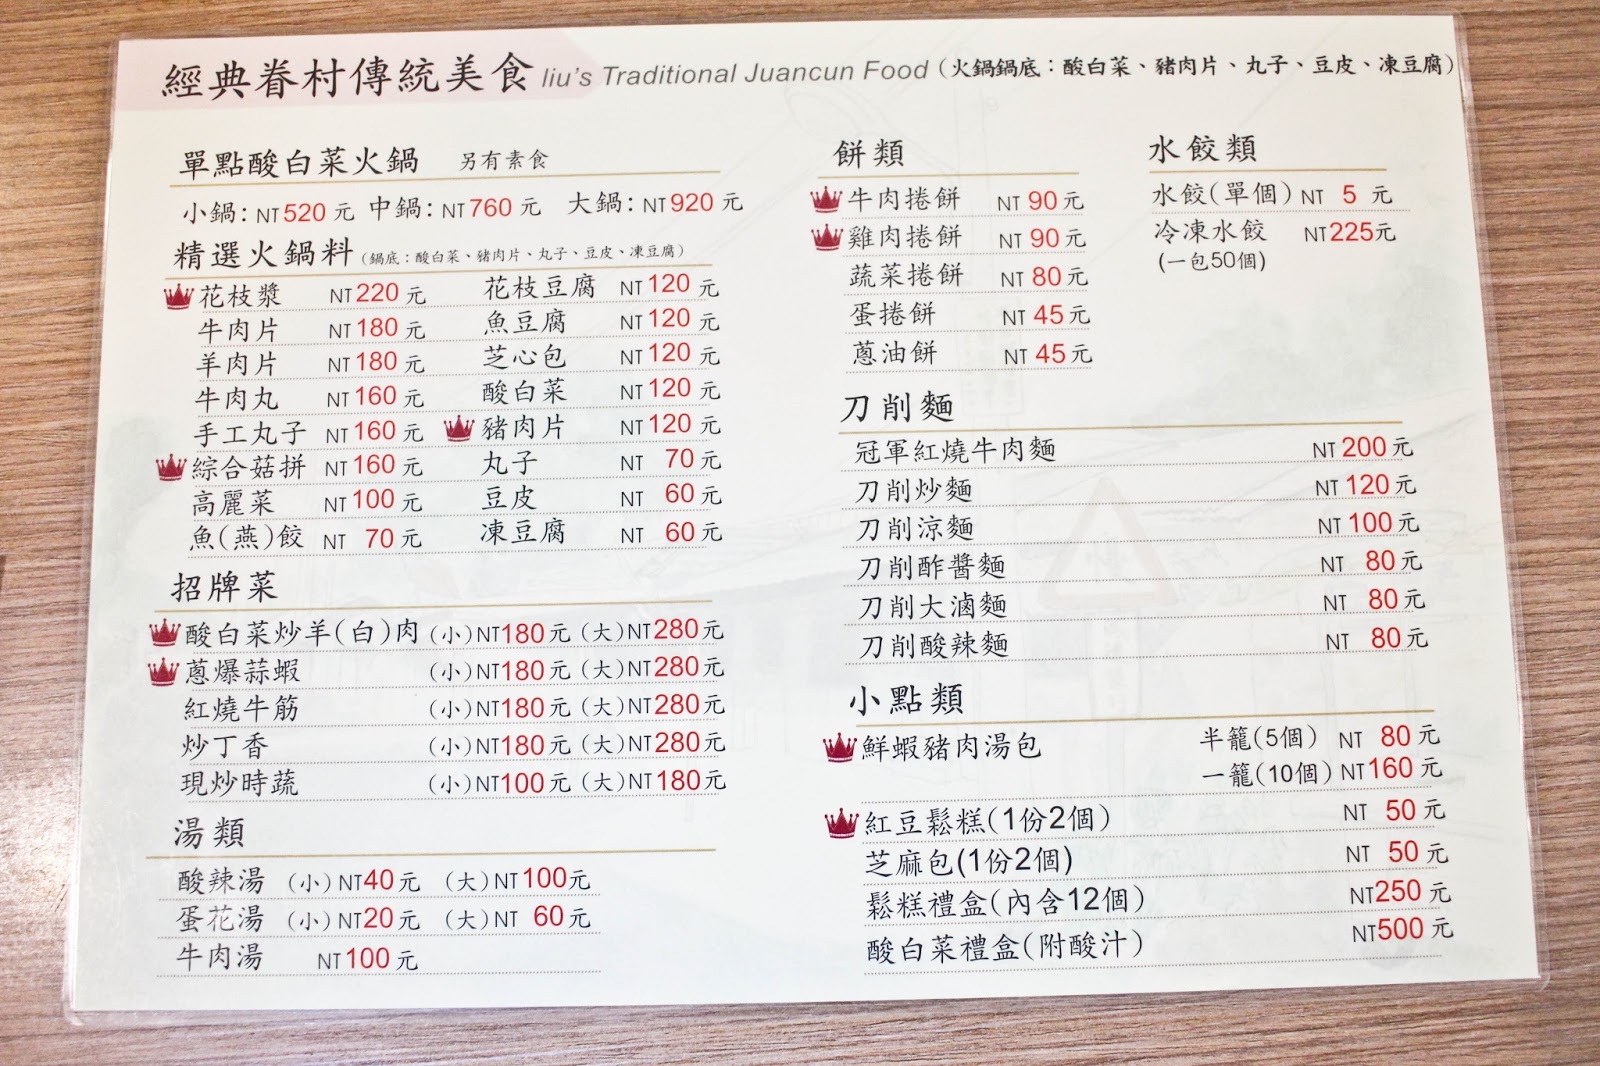 經典眷村傳統美食 liu's Traditional Juancun Food (火鍋鍋底：酸白菜、豬肉片、丸子、豆皮、凍豆腐)
單點酸白菜火鍋 另有素食
小鍋: NT520元 中鍋: NT760元 大鍋: NT920元
精選火鍋料 (鍋底：酸白菜、豬肉片、丸子、豆皮、凍豆腐)
花枝漿 NT220元 花枝豆腐 NT120元
牛肉片 NT180元 魚豆腐 NT120元
羊肉片 NT180元 芝心包 NT120元
牛肉丸 NT160元 酸白菜 NT120元
手工丸子 NT160元 豬肉片 NT120元
綜合菇拼 NT160元 丸子 NT 70元
高麗菜 NT100元 豆皮 NT 60元
魚(燕)餃 NT 70元 凍豆腐 NT 60元
招牌菜
酸白菜炒羊(白)肉 (小)NT180元 (大)NT280元
蔥爆蒜蝦 (小)NT180元 (大)NT280元
紅燒牛筋 (小)NT180元 (大)NT280元
炒丁香 (小)NT180元 (大)NT280元
現炒時蔬 (小)NT100元 (大)NT180元
湯類
酸辣湯 (小)NT40元 (大)NT100元
蛋花湯 (小)NT20元 (大)NT 60元
牛肉湯 NT100元
餅類
牛肉捲餅 NT 90元
雞肉捲餅 NT 90元
蔬菜捲餅 NT 80元
蛋捲餅 NT 45元
蔥油餅 NT 45元
水餃類
水餃(單個) NT 5 元
冷凍水餃 NT225元
(一包50個)
刀削麵
冠軍紅燒牛肉麵 NT200元
刀削炒麵 NT120元
刀削涼麵 NT100元
刀削酢醬麵 NT 80元
刀削大滷麵 NT 80元
刀削酸辣麵 NT 80元
小點類
鮮蝦豬肉湯包 半籠(5個) NT 80元
一籠(10個) NT160元
紅豆鬆糕(1份2個) NT 50元
芝麻包(1份2個) NT 50元
鬆糕禮盒(內含12個) NT250元
酸白菜禮盒(附酸汁) NT500元